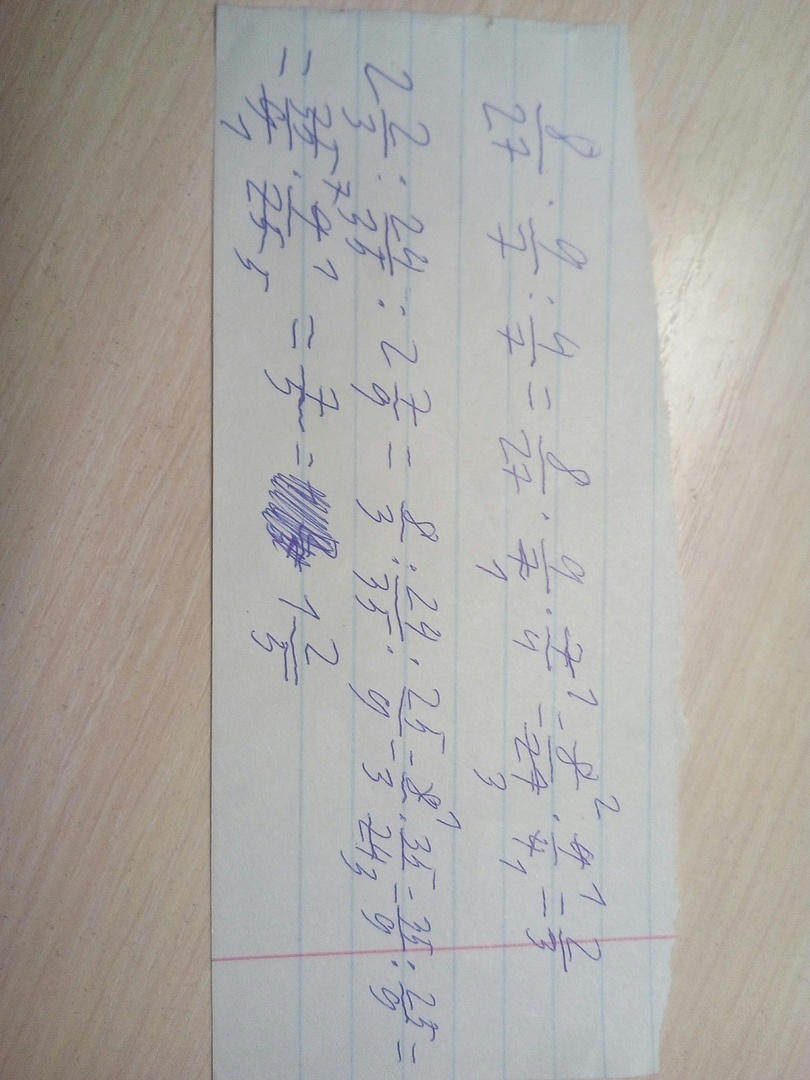 8/27 · 9/7 : 4/7 = 8/27 · 9/7 · 7/4 = 8/27 · 9/4 = 2/3
2 2/3 : 24/35 : 2 7/9 = 8/3 : 24/35 : 25/9 = 8/3 · 35/24 = 35/9 : 25/9 =
= 35/9 · 9/25 = 7/5 = 1 2/5